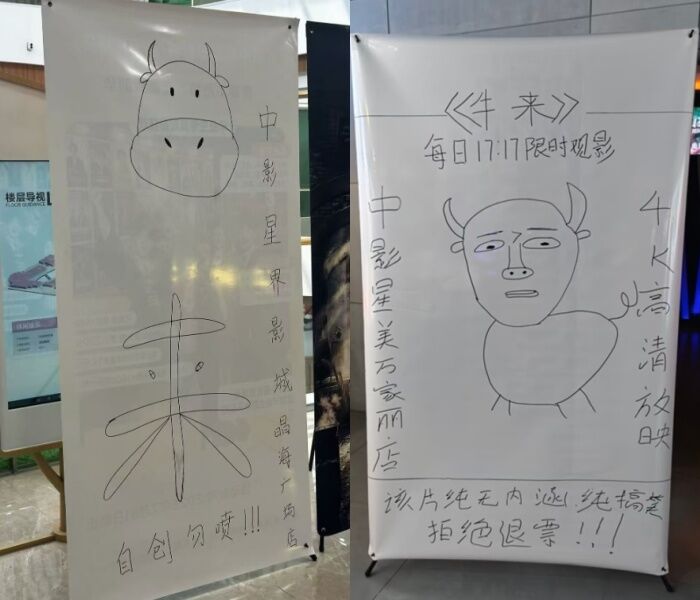 楼层导视
FLOOR GUIDANCE
中影星界影城晶海广场店
来
自创勿喷!!!
《牛来》
每日17:17限时观影
中影星美万家丽店
4K高清放映
该片纯无内涵.纯搞笑
拒绝退票!!!